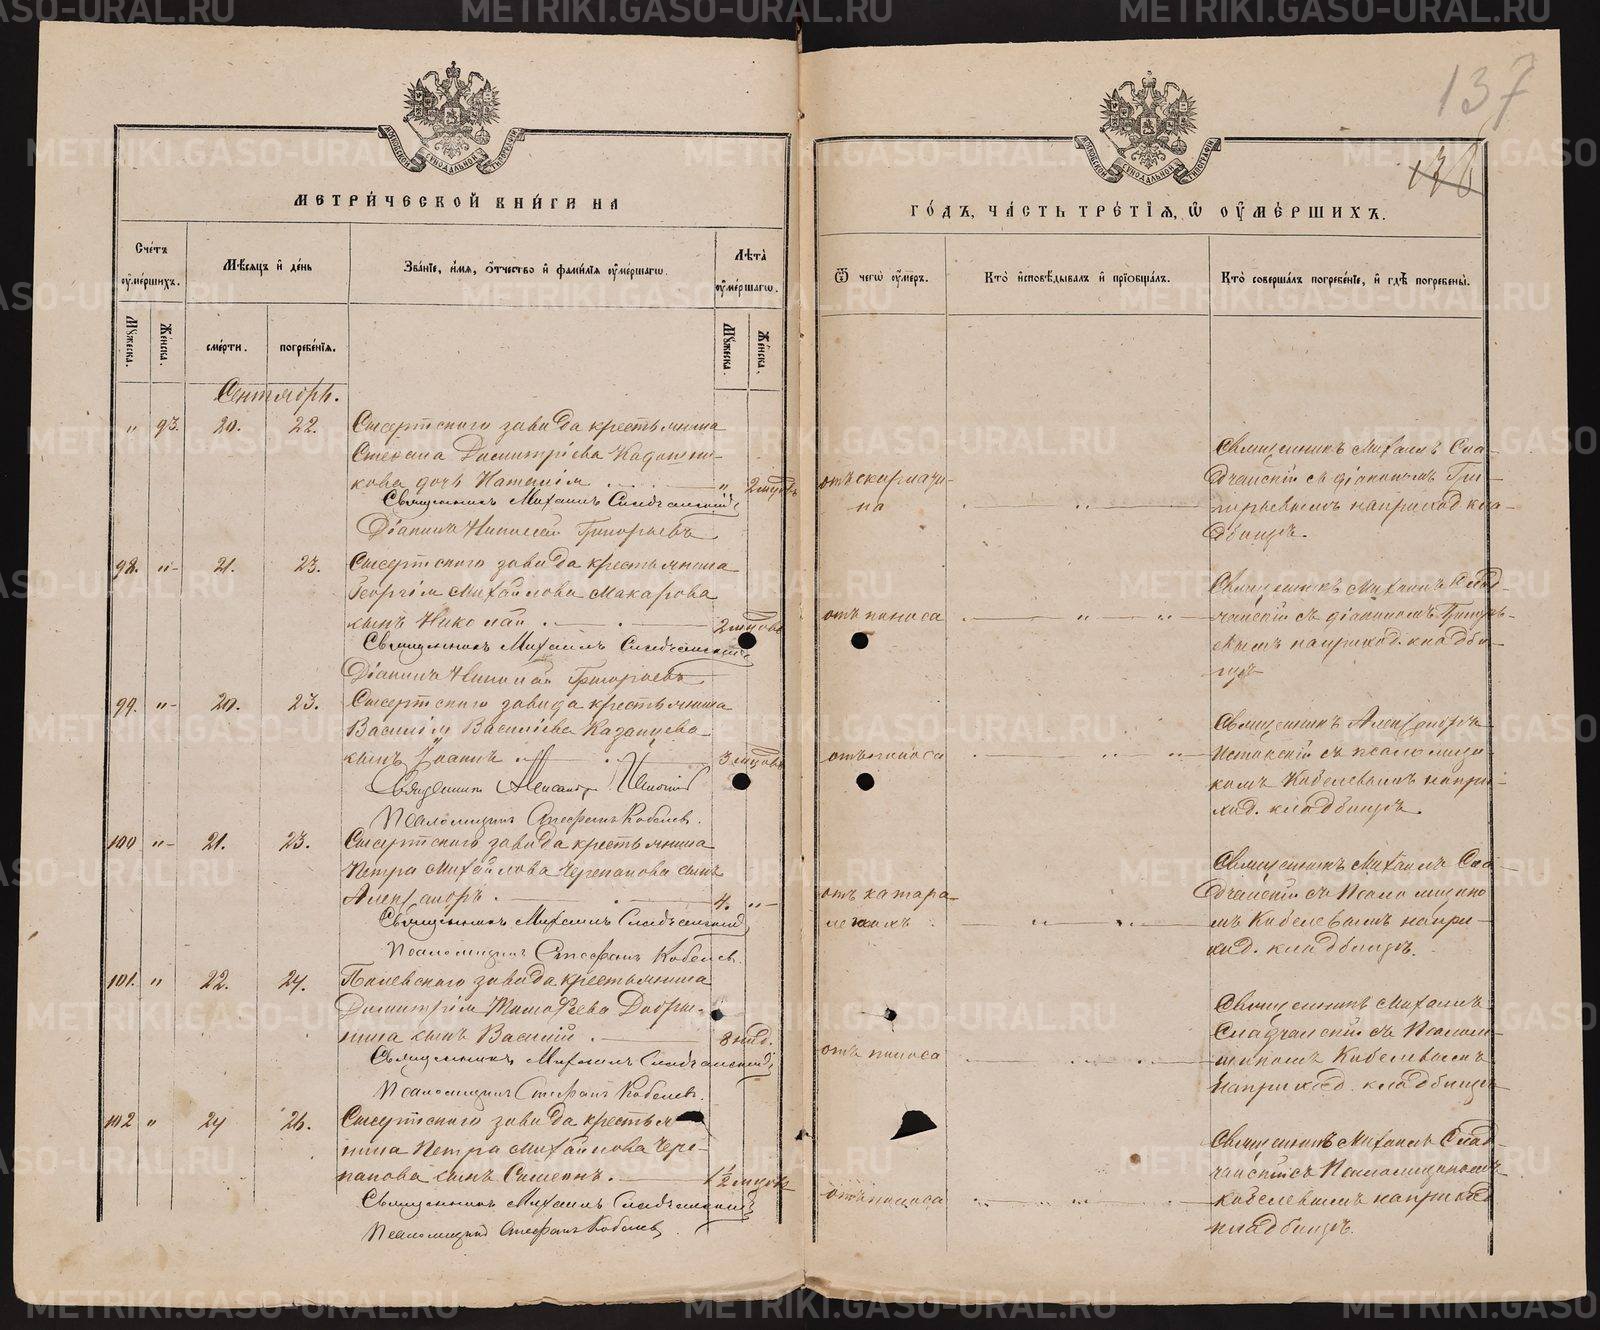 137
МЕТРИ́ЧЕСКОЙ КНИ́ГИ НА
ГО́ДЪ, ЧА́СТЬ ТРЕ́ТІЯ, Ѡ ОУ҆МЕ́РШИХЪ.
МОСКОВСКОЙ СѴНОДАЛЬНОЙ ТИПОГРАФІИ
Сче́тъ оу҆ме́ршихъ.
Мѣ́сяцъ и҆ де́нь
Зва́ніе, и҆́мя, ѻ҆́тчество и҆ фами́лія оу҆ме́ршагѡ.
Лѣта̀ оу҆ме́ршагѡ.
Ѿ чегѡ̀ оу҆́меръ.
Кто̀ и҆сповѣ́дывалъ и҆ пріѻбща́лъ.
Кто̀ соверша́лъ погребе́ніе, и҆ гдѣ̀ погребены̀.
Му́жеска.
Же́нска.
сме́рти.
погребе́нія.
Му́жеска.
Же́нска.
Сентябрь.
" 93. 20. 22. Сысертскаго завода крестьянина
Стефана Димитріева Кадошни-
кова дочь Наталія " 2 мцовъ
Священникъ Михаилъ Сладчанскій
Діаконъ Николай Григорьевъ
отъ скарлати-
на " "
Священникъ Михаилъ Сла-
дчанскій съ діакономъ Гри-
горьевымъ на приход. кла-
дбищѣ.
98. " 21. 23. Сысертскаго завода крестьянина
Георгія Михайлова Макарова
сынъ Николай 2 мцовъ
Священникъ Михаилъ Сладчанскій
Діаконъ Николай Григорьевъ
отъ поноса " "
Священникъ Михаилъ Слад-
чанскій съ діакономъ Григорь-
евымъ на приход. кладби-
щѣ
99. " 20. 23. Сысертскаго завода крестьянина
Василія Василіева Казанцева
сынъ Іоаннъ 3 мцовъ
Священникъ Александръ
Псаломщикъ Стефанъ Кобелев.
отъ поноса " "
Священникъ Александръ
съ псаломщи-
комъ Кобелевымъ на при-
ход. кладбищѣ
100 " 21. 23. Сысертскаго завода крестьянина
Петра Михайлова Черепанова сынъ
Александръ 4. "
Священникъ Михаилъ Сладчанскій
Псаломщикъ Стефанъ Кобелев.
отъ катара
легкихъ " "
Священникъ Михаилъ Сла-
дчанскій съ Псаломщико-
мъ Кобелевымъ на при-
ход. кладбищѣ.
101. " 22. 24. Полевскаго завода крестьянина
Димитрія Тимоѳѣева Добры-
нина сынъ Василій 8 нед.
Священникъ Михаилъ Сладчанскій
Псаломщикъ Стефанъ Кобелев.
отъ поноса
Священникъ Михаилъ
Сладчанскій съ Псалом-
щикомъ Кобелевымъ
на приход. кладбищѣ
102 " 24 26. Сысертскаго завода крестья-
нина Петра Михайлова Чере-
панова сынъ Симеонъ. 1½ мцовъ
Священникъ Михаилъ Сладчанскій
Псаломщикъ Стефанъ Кобелев
отъ поноса " "
Священникъ Михаилъ Слад-
чанскій съ Псаломщикомъ
Кобелевымъ на приход
кладбищѣ.